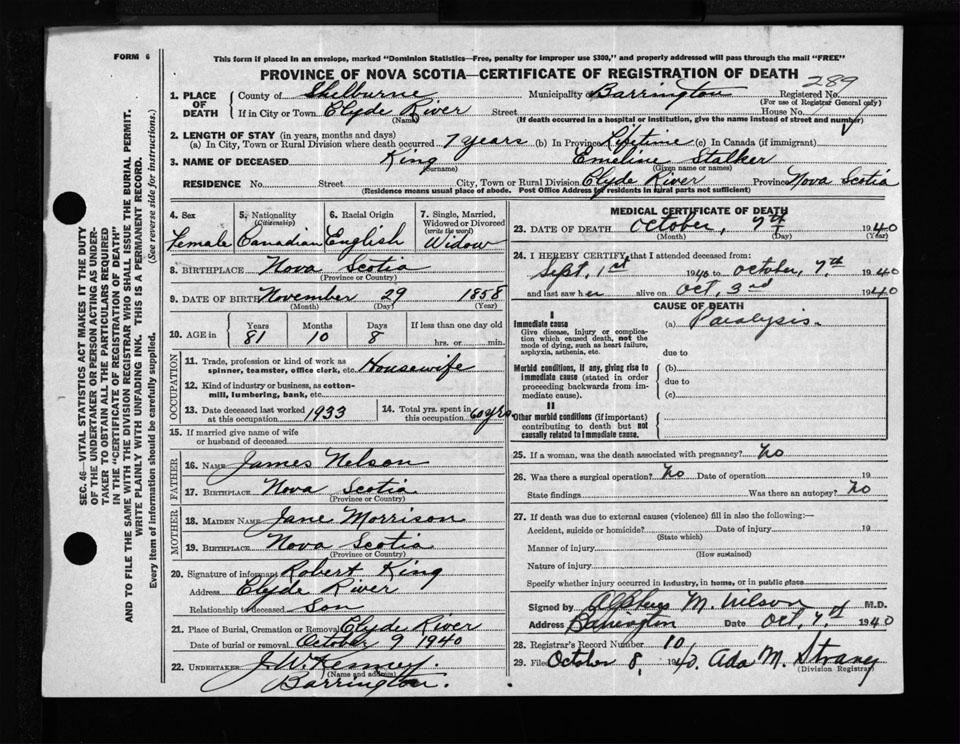 FORM 6
This form if placed in an envelope, marked "Dominion Statistics—Free, penalty for improper use $300," and properly addressed will pass through the mail "FREE"
PROVINCE OF NOVA SCOTIA—CERTIFICATE OF REGISTRATION OF DEATH
289
1. PLACE OF DEATH { County of Shelburne Municipality of Barrington Registered No.
(For use of Registrar General only)
If in City or Town Clyde River Street House No.
(Name) (If death occurred in a hospital or institution, give the name instead of street and number)
2. LENGTH OF STAY (in years, months and days)
(a) In City, Town or Rural Division where death occurred 7 years (b) In Province Lifetime (c) In Canada (if immigrant)
3. NAME OF DECEASED King Emeline Stalker
(Surname) (Given name or names)
RESIDENCE No. Street City, Town or Rural Division Clyde River Province Nova Scotia
(Residence means usual place of abode. Post Office Address for residents in rural parts not sufficient)
4. Sex Female
5. Nationality (Citizenship) Canadian
6. Racial Origin English
7. Single, Married, Widowed or Divorced (write the word) Widow
8. BIRTHPLACE Nova Scotia
(Province or Country)
9. DATE OF BIRTH November 29 1858
(Month) (Day) (Year)
10. AGE in { Years Months Days If less than one day old
81 10 8 hrs. or min.
OCCUPATION
11. Trade, profession or kind of work as spinner, teamster, office clerk, etc. Housewife
12. Kind of industry or business, as cotton-mill, lumbering, bank, etc.
13. Date deceased last worked at this occupation 1933
14. Total yrs. spent in this occupation 60 yrs
15. If married give name of wife or husband of deceased
FATHER
16. NAME James Nelson
17. BIRTHPLACE Nova Scotia
(Province or Country)
MOTHER
18. MAIDEN NAME Jane Morrison
19. BIRTHPLACE Nova Scotia
(Province or Country)
20. Signature of informant Robert King
Address Clyde River
Relationship to deceased Son
21. Place of Burial, Cremation or Removal Clyde River
Date of burial or removal October 9 1940
22. UNDERTAKER J. W. Kenney.
(Name and address)
Barrington.
MEDICAL CERTIFICATE OF DEATH
23. DATE OF DEATH October, 7th 1940
(Month) (Day) (Year)
24. I HEREBY CERTIFY, that I attended deceased from:
Sept. 1st 1940 to October, 7th. 1940
and last saw her alive on Oct. 3rd 1940
CAUSE OF DEATH
I
Immediate cause (a) Paralysis.
Give disease, injury or complication which caused death, not the mode of dying, such as heart failure, asphyxia, asthenia, etc.
due to
Morbid conditions, if any, giving rise to immediate cause (stated in order proceeding backwards from immediate cause).
(b)
due to
(c)
II
Other morbid conditions (if important) contributing to death but not causally related to immediate cause.
25. If a woman, was the death associated with pregnancy? No
26. Was there a surgical operation? No Date of operation 19
State findings Was there an autopsy? No
27. If death was due to external causes (violence) fill in also the following:—
Accident, suicide or homicide? Date of injury 19
(State which)
Manner of injury
(How sustained)
Nature of injury
Specify whether injury occurred in industry, in home, or in public place
Signed by M. Wilson M.D.
Address Barrington Date Oct. 7th 1940
28. Registrar's Record Number 10
29. Filed October 8, 1940. Ada M. Strang
(Division Registrar)
SEC. 46—VITAL STATISTICS ACT MAKES IT THE DUTY
OF THE UNDERTAKER OR PERSON ACTING AS UNDER-
TAKER TO OBTAIN ALL THE PARTICULARS REQUIRED
IN THE "CERTIFICATE OF REGISTRATION OF DEATH"
AND TO FILE THE SAME WITH THE DIVISION REGISTRAR WHO SHALL ISSUE THE BURIAL PERMIT.
WRITE PLAINLY WITH UNFADING INK. THIS IS A PERMANENT RECORD.
Every item of information should be carefully supplied. (See reverse side for instructions.)